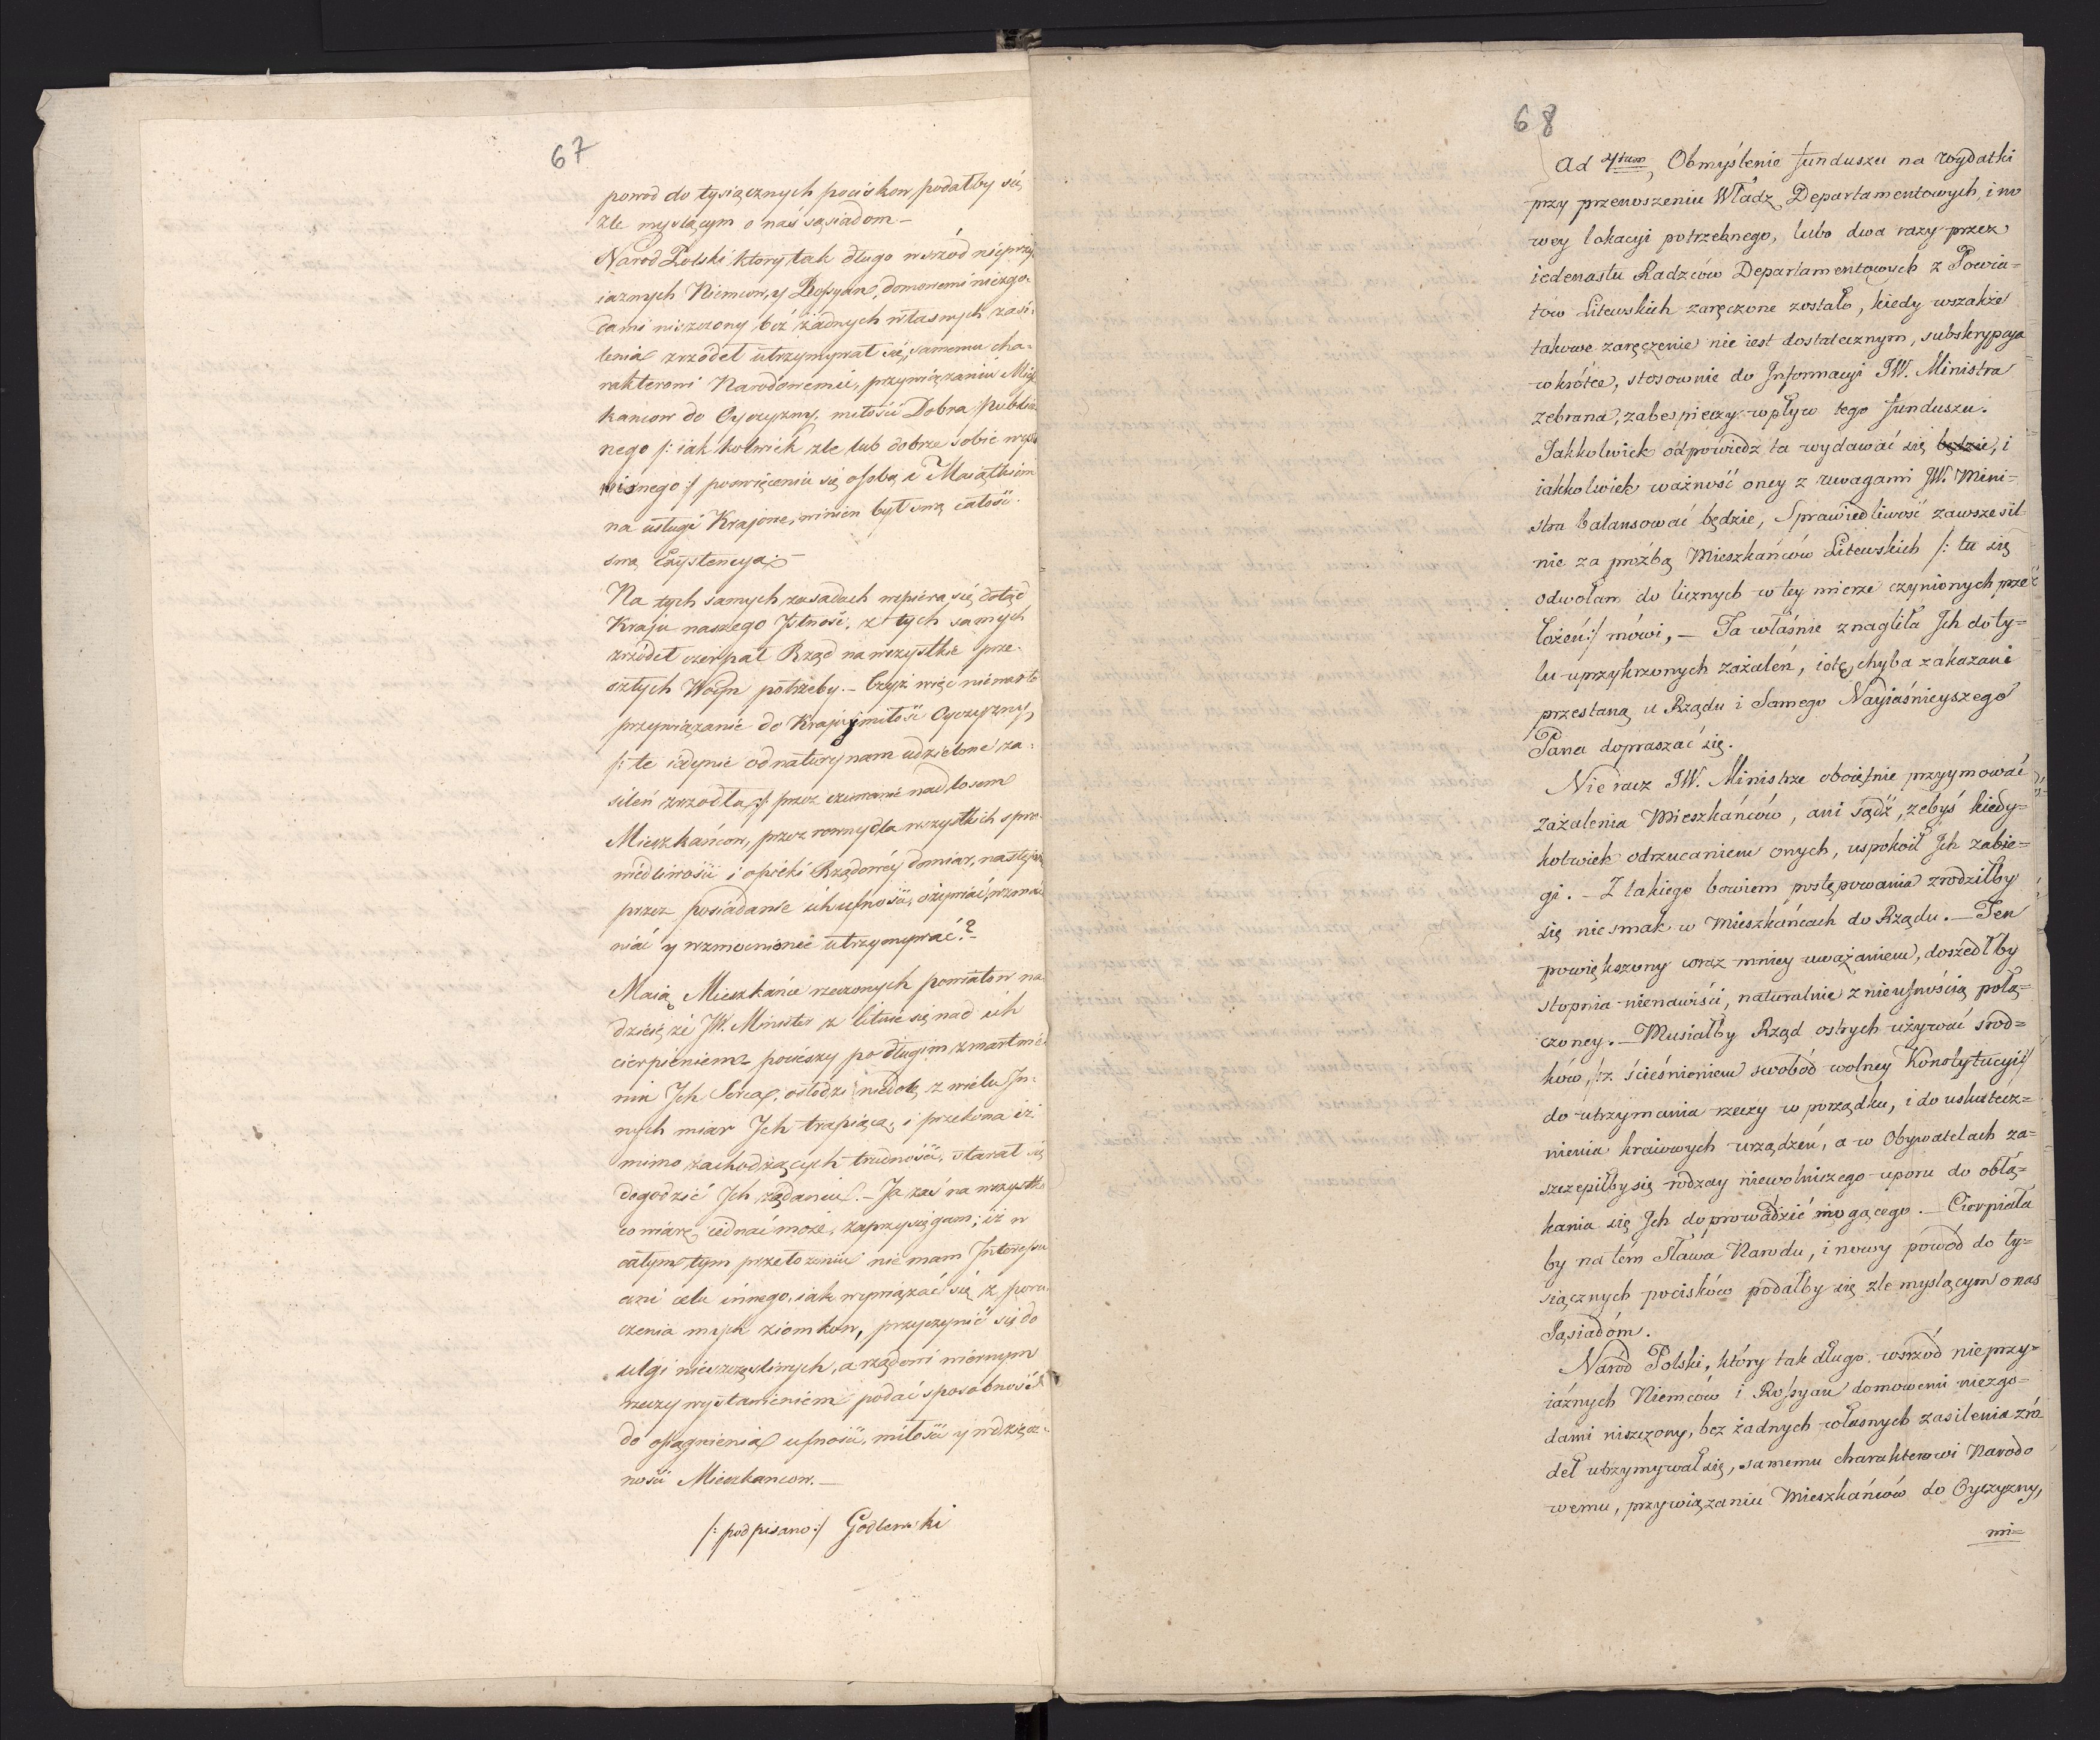 67
powod do tysiącznych pociskow podałby się
źle myślącym o nas sąsiadom —
Narod Polski ktory tak długo wśrzód nieprzy
iaznych Niemcow, y Rossyan, domowemi niezgo-
dami niszczony bez żadnych własnych zasi-
lenia zrzódeł utrzymywał się, samemu cha-
rakterowi Narodowemu, przywiązaniu Miesz
kancow do Oyczyzny, miłości Dobra Publicz
nego /: iak kolwiek źle lub dobrze sobie
:/ poswięceniu się osobą i Maiątkiem
na usługi Kraiowe, winien był swą całość
swą Exystencyą. —
Na tych samych zasadach wspiera się dotąd
Kraju naszego Istność, z tych samych
zrzódeł czerpał Rząd na wszystkie prze-
szłych Woyn potrzeby. — Czyż więc niewarto
przywiązanie do Kraju y miłość Oyczyzny
/: te iedynie od natury nam udzielone za-
sileń zrzodła :/ przez czuwanie nad losem
Mieszkańcow, przez rowny dla wszystkich spra-
wiedliwości i opieki Rządowéy domiar, następnie
przez posiadanie ich ufności, ożywiać, wzmac
niać y wzmocnione utrzymywać? —
Maią Mieszkańce rzeczonych powiatow na-
dzieię że JW. Minister zlituie się nad ich
cierpieniem, pocieszy po długim zmartwie-
niu Ich Serca, osłodzi niedolę z wielu In-
nych miar Ich trapiącą, i przekona iż
mimo zachodzących trudności, starał się
dogodzić Ich żądaniu. — Ja zaś na wszystko
co wiarę iednać może, zaprzysięgam; iż w
całym tym przełożeniu nie mam Interessu
ani celu innego, iak wywiązać się z poru-
czenia mych ziomkow, przyczynić się do
ulgi nieszczęśliwych, a rządowi wiernym
rzeczy wystawieniem podać sposobność
do osiągnienia ufności, miłości y wdzięcz-
ności Mieszkancow. —
/: podpisano :/ Godlewski
68
Ad 4tum, Obmyślenie funduszu na wydatki
przy przenoszeniu Władz Departamentowych, i no
wey lokacyi potrzebnego, lubo dwa razy przez
iedenastu Radzców Departamentowych z Powia=
tów Litewskich zaręczone zostało, kiedy wszakże
takowe zaręczenie nie iest dostatecznym, subskrypcya
wkrótce, stosownie do Informacyi JW. Ministra
zebrana, zabespieczy wpływ tego funduszu.
Jakkolwiek odpowiedź ta wydawać się będzie, i
iakkolwiek ważność oney z uwagami JW. Mini=
stra balansować będzie, Sprawiedliwość zawsze sil
nie za proźbą Mieszkańców Litewskich /: tu się
odwołam do licznych w tey mierze czynionych prze
łożeń :/ mówi, — Ta właśnie znagliła Ich do ty=
lu uprzykrzonych zażaleń, i tę chyba zakazani
przestaną u Rządu i Samego Nayiaśnieyszego
Pana dopraszać się.
Nie racz JW. Ministrze oboiętnie przyymować
zażalenia Mieszkańców, ani sądź, żebyś kiedy=
kolwiek odrzucaniem onych, uspokoił Ich zabie=
gi. — Z takiego bowiem postępowania zrodziłby
się niesmak w Mieszkańcach do Rządu. — Ten
powiększony coraz mniey uważaniem, doszedłby
stopnia nienawiści, naturalnie z nieufnością połą=
czoney. — Musiałby Rząd ostrych używać srod=
ków, /: z ścieśnieniem swobód wolney Konstytucyi :/
do utrzymania rzeczy w porządku, i do uskutecz=
nienia kraiowych urządzeń, a w Obywatelach za=
szczepiłby się rodzay niewolniczego uporu do obłą=
kania się Ich doprowadzić mogącego. — Cierpiała
by na tém Sława Narodu, i nowy powód do ty=
siącznych pocisków podałby się źle myslącym o nas
Sąsiadóm.
Naród Polski, który tak długo wśrzód nieprzy=
iaźnych Niemców i Rossyan domowemi niezgo=
dami niszczony, bez żadnych własnych zasilenia źró
deł utrzymywał się, samemu charakterowi Narodo
wemu, przywiązaniu Mieszkańców do Oyczyzny,
mi=